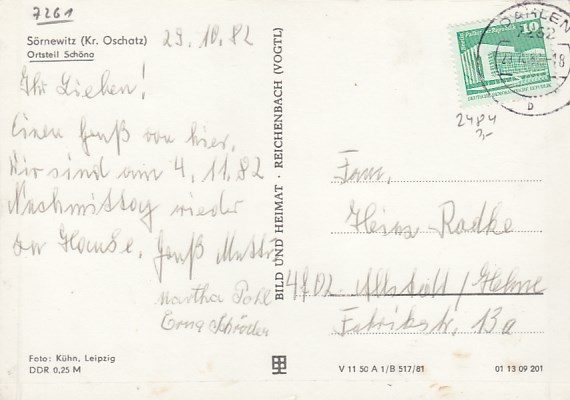 7261
Sörnewitz (Kr. Oschatz)
Ortsteil Schöna
29.10.82
Ihr Lieben!
Einen Gruß von hier.
Wir sind am 4.11.82
Nachmittag wieder
zu Hause. Gruß Mutti
Martha Pohl
Erna Schröder
Foto: Kühn, Leipzig
DDR 0,25 M
BILD UND HEIMAT · REICHENBACH (VOGTL)
DAHLEN
7262
-18
b
10
DEUTSCHE DEMOKRATISCHE REPUBLIK
2484
3,-
Fam.
Heinz Radke
4702 Allstedt / Helme
Fabrikstr. 13a
V 11 50 A 1/B 517/81
01 13 09 201